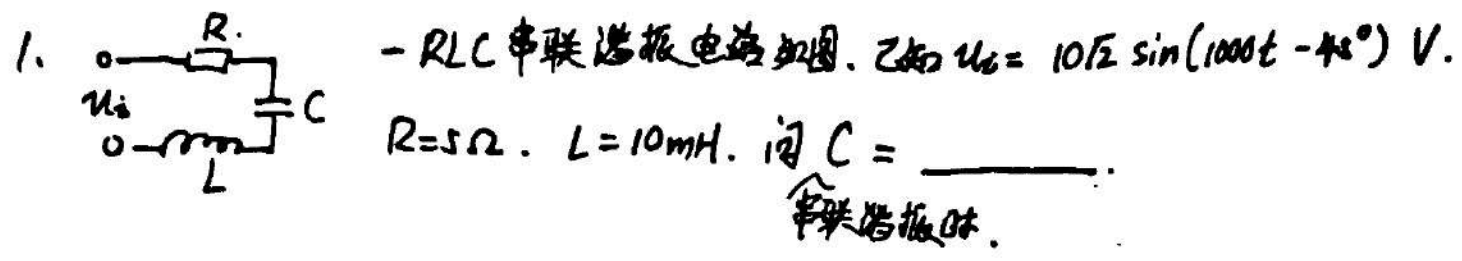 1. R. 一RLC串联谐振电路如图. 已知 uᵢ= 10√2 sin(1000t -45°) V.
uᵢ C R=5Ω. L=10mH. 问 C = ______.
L 串联谐振时.